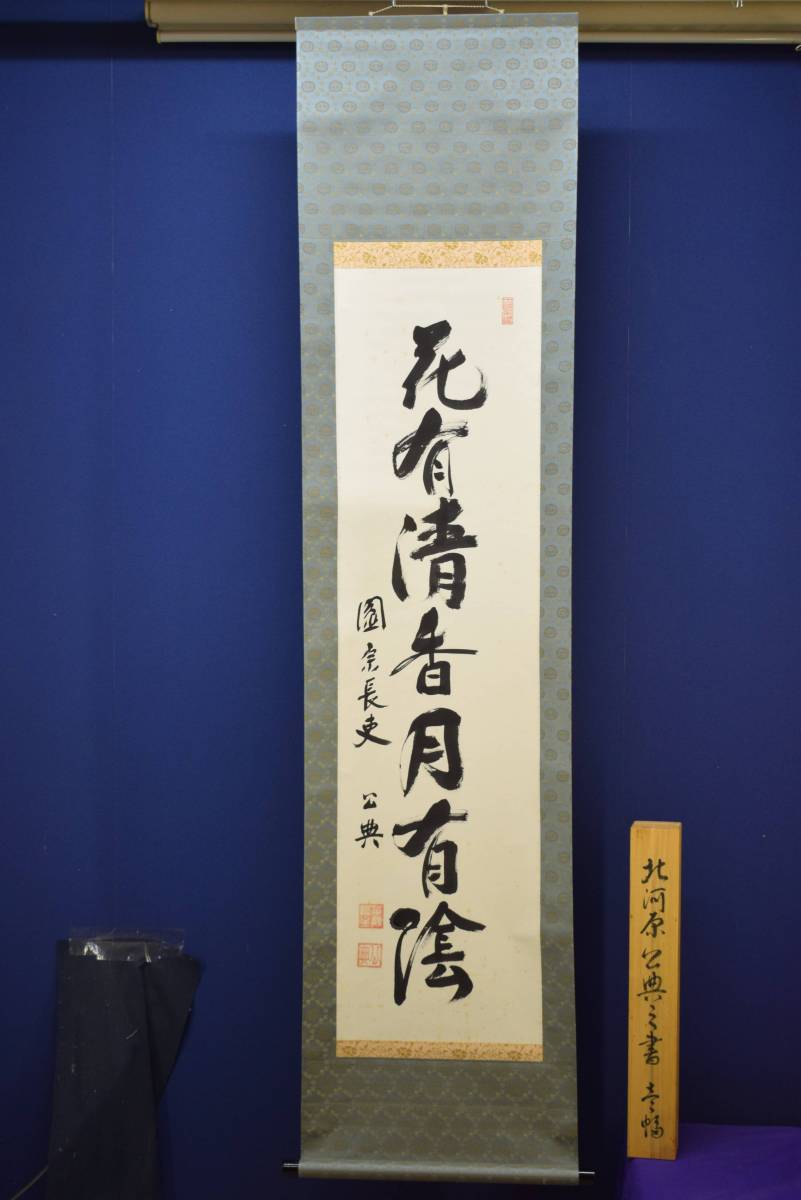 花有清香月有陰
圓宗長吏 公典
北河原公典之書 壱幅